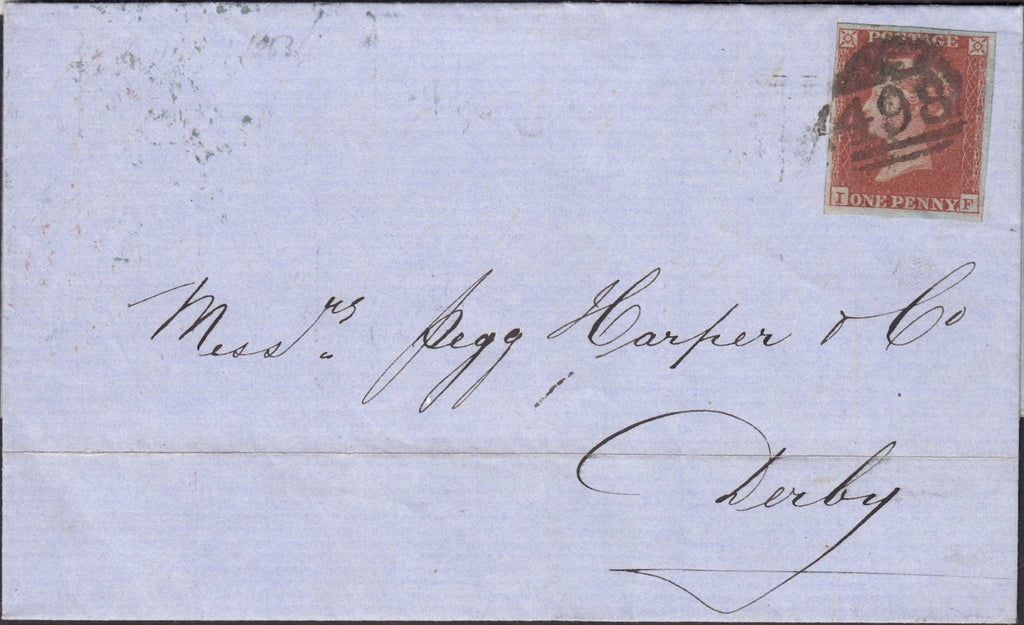 POSTAGE
498
I ONE PENNY F
Mess.rs Pegg Harper & Co
Derby